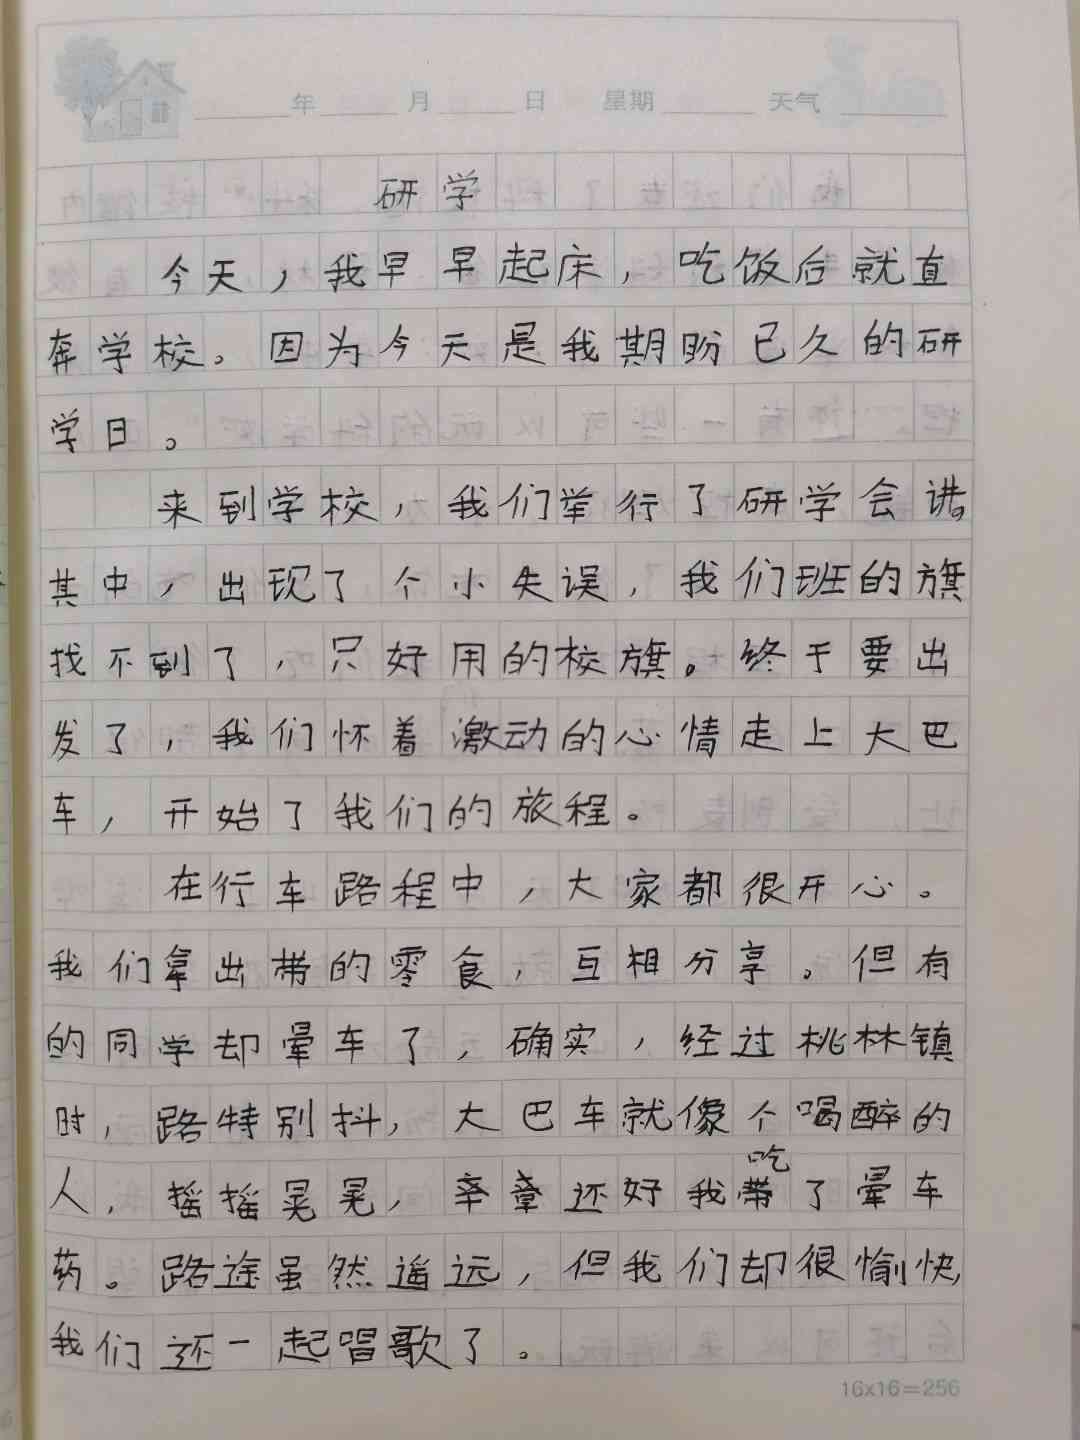 年 月 日 星期 天气
研学
今天，我早早起床，吃饭后就直
奔学校。因为今天是我期盼已久的研
学日。
来到学校，我们举行了研学会讲。
其中，出现了个小失误，我们班的旗
找不到了，只好用的校旗。终于要出
发了，我们怀着激动的心情走上大巴
车，开始了我们的旅程。
在行车路程中，大家都很开心。
我们拿出带的零食，互相分享。但有
的同学却晕车了，确实，经过桃林镇
时，路特别抖，大巴车就像个喝醉的
吃
人，摇摇晃晃，还好我带了晕车
药。路途虽然遥远，但我们却很愉快，
我们还一起唱歌了。
16x16=256